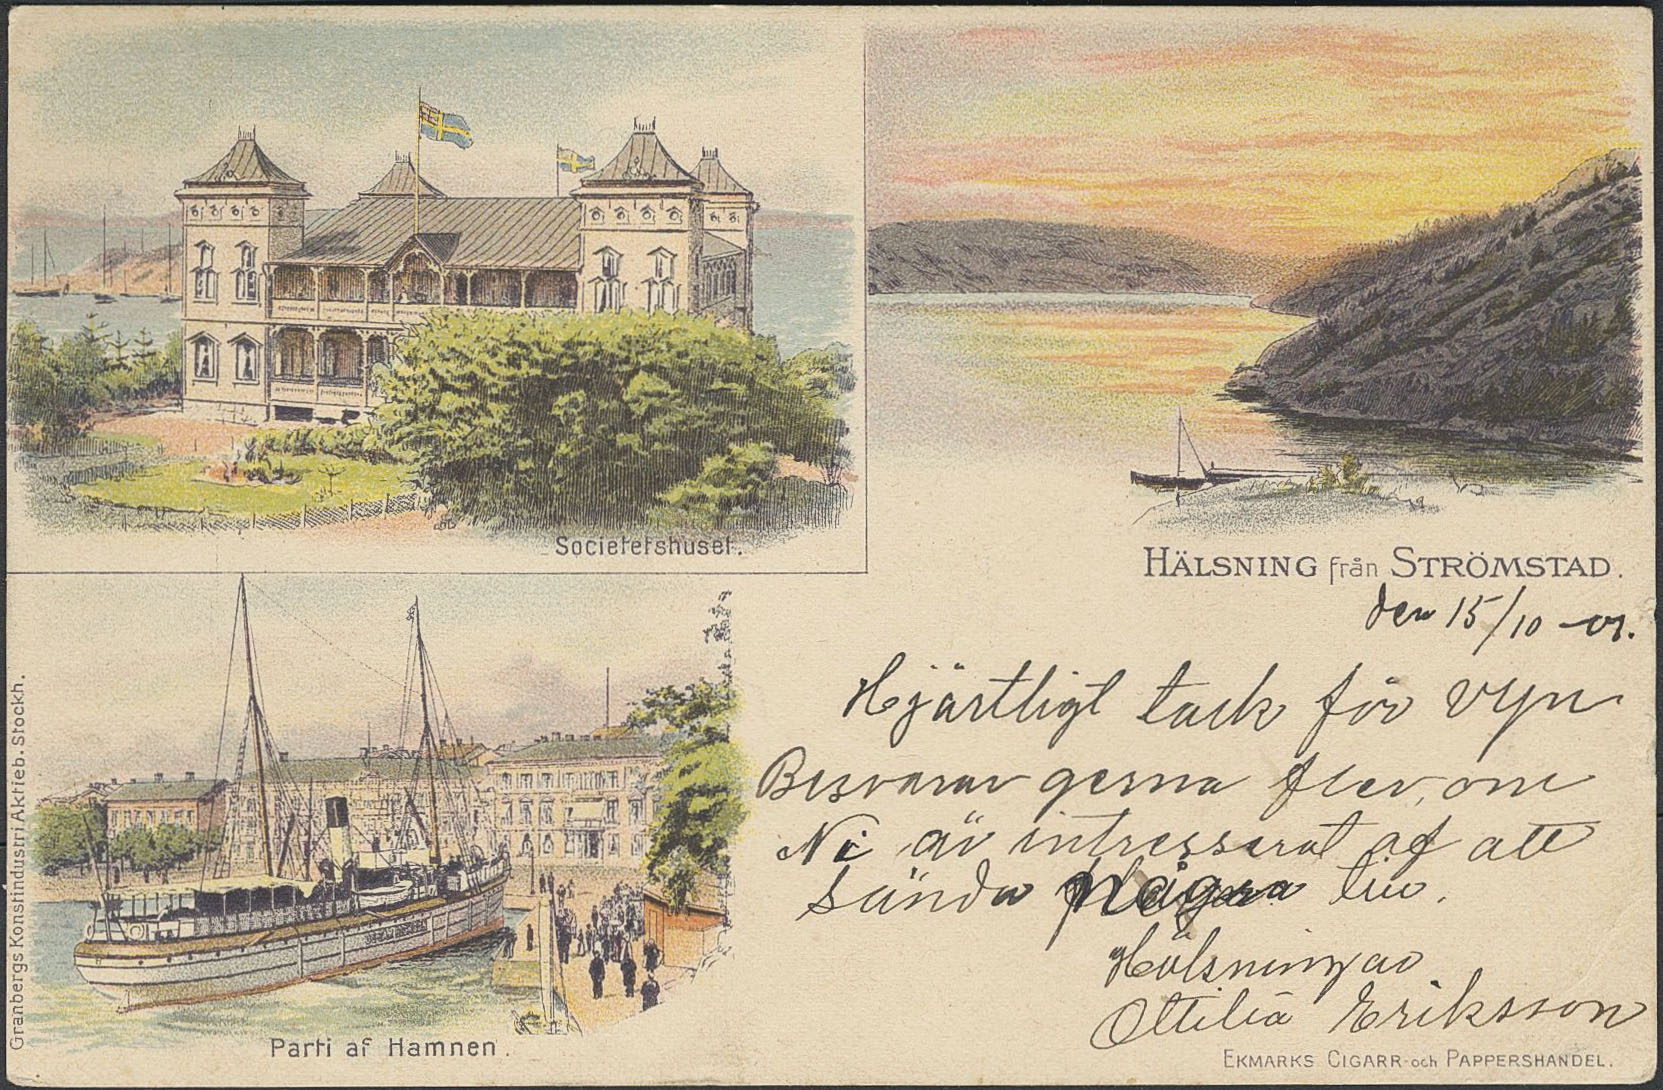 Societetshuset.
HÄLSNING från STRÖMSTAD.
den 15/10 -01.
Hjärtligt tack för vyn
Besvarar gerna fler, om
Ni är intresserat af att
sända några
Hälsningar
Ottilia Eriksson
Parti af Hamnen.
EKMARKS CIGARR- och PAPPERSHANDEL.
Granbergs Konstindustri Aktieb. Stockh.